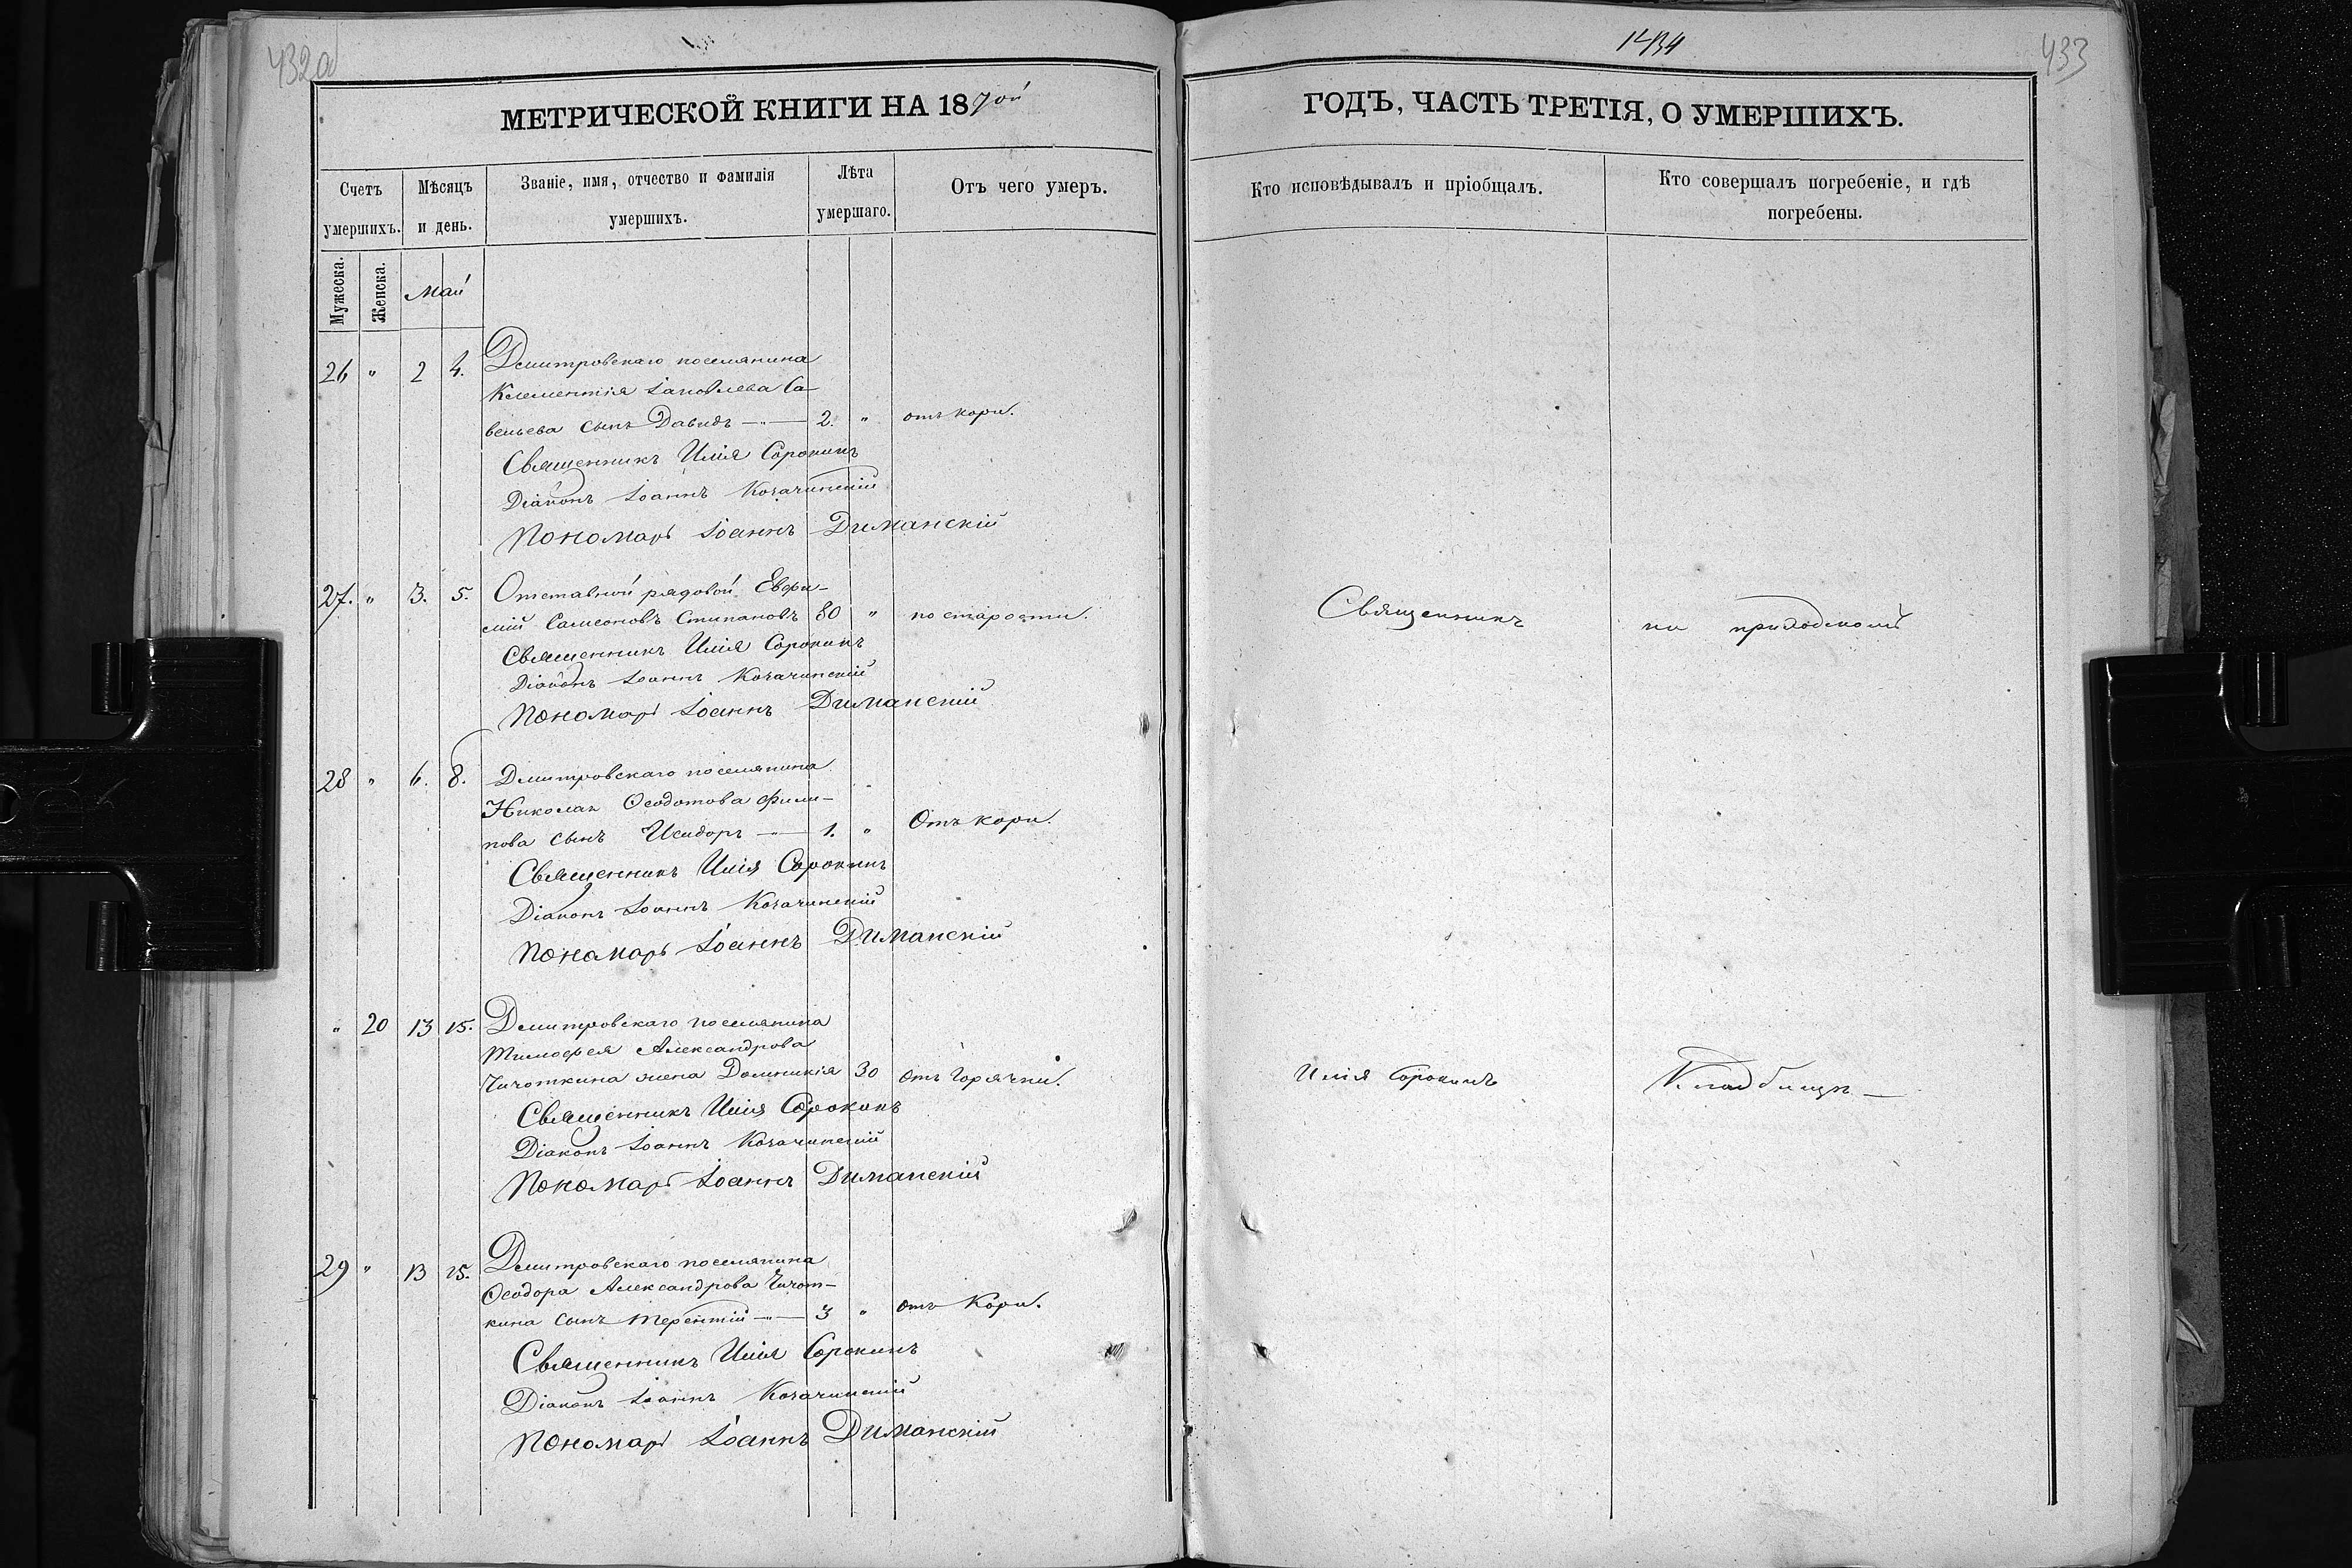 432а
МЕТРИЧЕСКОЙ КНИГИ НА 1870й
Счетъ умершихъ.
Мѣсяцъ и день.
Званіе, имя, отчество и фамилія умершихъ.
Лѣта умершаго.
Отъ чего умеръ.
Мужеска.
Женска.
Май
26 " 2 4. Дмитровскаго поселянина
Клементія Іаковлева Са-
вельева сынъ Давидъ —"— 2. " отъ кори.
Священникъ Илія Сорокинъ
Діаконъ Іоаннъ Козачинскій
Пономарь Іоаннъ Диманскій
27. " 3. 5. Отставной рядовой Евфи-
мій Самсоновъ Стипановъ 80 " по старости.
Священникъ Илія Сорокинъ
Діаконъ Іоаннъ Козачинскій
Пономарь Іоаннъ Диманскій
28 " 6. 8. Дмитровскаго поселянина
Николая Ѳеодотова Фили-
пова сынъ Исидоръ —"— 1. " Отъ кори.
Священникъ Илія Сорокинъ
Діаконъ Іоаннъ Козачинскій
Пономарь Іоаннъ Диманскій
" 20 13 15. Дмитровскаго поселянина
Тимофея Александрова
Чичоткина жена Домникія 30 отъ горячки.
Священникъ Илія Сорокинъ
Діаконъ Іоаннъ Козачинскій
Пономарь Іоаннъ Диманскій
29 " 13 15. Дмитровскаго поселянина
Ѳеодора Александрова Чичот-
кина сынъ Терентій —"— 3 " отъ Кори.
Священникъ Илія Сорокинъ
Діаконъ Іоаннъ Козачинскій
Пономарь Іоаннъ Диманскій
1434
433
ГОДЪ, ЧАСТЬ ТРЕТІЯ, О УМЕРШИХЪ.
Кто исповѣдывалъ и пріобщалъ.
Кто совершалъ погребеніе, и гдѣ погребены.
Священникъ на приходскомъ
Илія Сорокинъ Кладбищѣ —